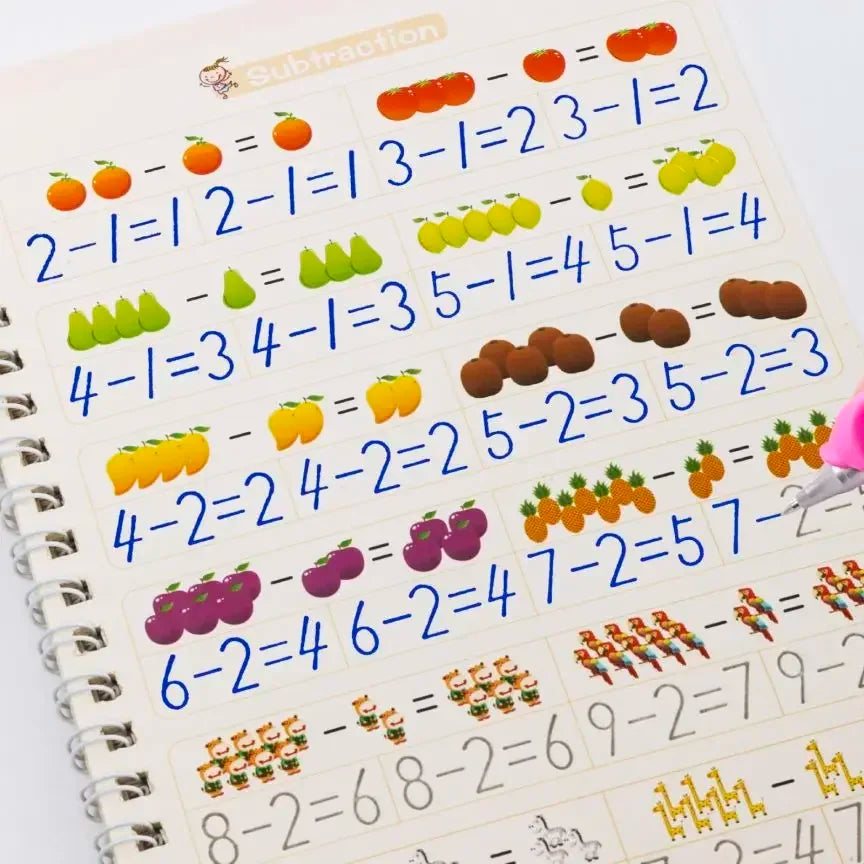 Subtraction
2-1=1 2-1=1 3-1=2 3-1=2
4-1=3 4-1=3 5-1=4 5-1=4
4-2=2 4-2=2 5-2=3 5-2=3
6-2=4 6-2=4 7-2=5 7-2-
8-2=6 8-2=6 9-2=7 9-2
-2=4 7